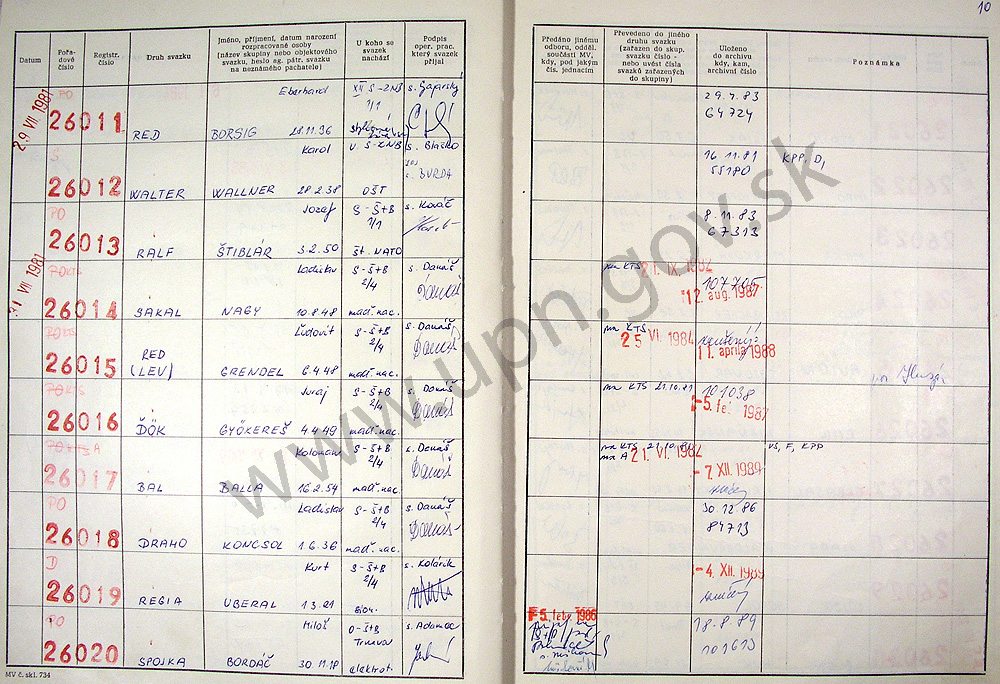 10
Datum
Pořadové číslo
Registr. číslo
Druh svazku
Jméno, příjmení, datum narození rozpracované osoby (název skupiny nebo objektového svazku, heslo ag. pátr. svazku na neznámého pachatele)
U koho se svazek nachází
Podpis oper. prac. který svazek přijal
Předáno jinému odboru, odděl. součásti MV, kdy, pod jakým čís. jednacím
Převedeno do jiného druhu svazku (zařazen do skup. svazku číslo - nebo uvést čísla svazků zařazených do skupiny)
Uloženo do archivu kdy, kam, archivní číslo
Poznámka
29 VII 1981
PO
26011
RED
Eberhard
BORSIG 28.11.36
XII S-ZNB
1/1
29.4.83
64724
S
26012
WALTER
Karol
WALLNER 28.2.38
V S-ZNB
OŠT
s. Blaško
s. BURDA
16.11.81
55180
KPP, D,
PO
26013
RALF
Jozef
ŠTIBLÁR 3.2.50
S-Š+B
1/1
št. NATO
s. Kováč
8.11.83
67313
31 VII 1981
PO KTS
26014
SAKAL
Ladislav
NAGY 10.8.48
S-Š+B
2/4
maď. nac.
s. Danáš
na KTS
107705
12. aug. 1987
PO KTS
26015
RED
(LEV)
Ľudovít
GRENDEL 6.4.48
S-Š+B
2/4
maď. nac.
s. Danáš
na KTS
25 VI. 1984
11. apríla 1988
PO KTS
26016
DÖK
Juraj
GYÖKEREŠ 4.4.49
S-Š+B
2/4
maď. nac.
s. Danáš
na KTS 21.10.81
101038
-5. feb. 1987
PO KTS A
26017
BAL
Koloman
BALLA 16.2.54
S-Š+B
2/4
maď. nac.
s. Danáš
na KTS
na A 21. VI. 1984
-7. XII. 1989
VS, F, KPP
PO
26018
DRAHO
Ladislav
KONCSOL 1.6.36
S-Š+B
2/4
maď. nac.
s. Danáš
30.12.86
84713
D
26019
REGIA
Kurt
UBERAL 1.3.21
S-Š+B
2/4
sion.
s. Kolárik
-4. XII. 1989
PO
26020
SPOJKA
Miloš
BORDÁČ 30.11.18
O-Š+B
Trnava
elektrot.
s. Adamec
-5. feb. 1986
18.8.89
101613
MV č. skl. 734
www.upn.gov.sk